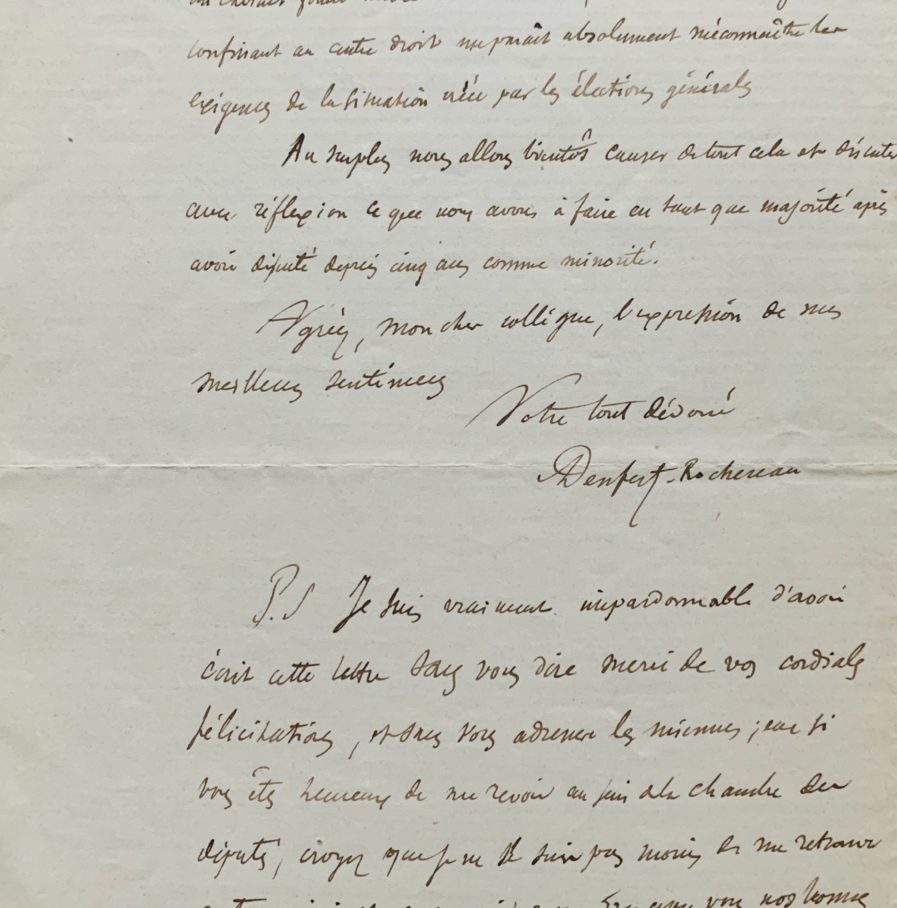 confinant au centre droit me paraît absolument méconnaître les
exigences de la situation créée par les élections générales
Au surplus nous allons bientôt causer de tout cela et discuter
avec réflexion ce que nous avons à faire en tant que majorité après
avoir disputé depuis cinq ans comme minorité.
Agréez, mon cher collègue, l'expression de mes
meilleurs sentimens
Votre tout dévoué
Denfert-Rochereau
P.S Je suis vraiment impardonnable d'avoir
écrit cette lettre sans vous dire merci de vos cordiales
félicitations, et sans vous adresser les miennes; car si
vous êtes heureux de me revoir au sein de la chambre des
députés, croyez que je ne le suis pas moins de me retrouver